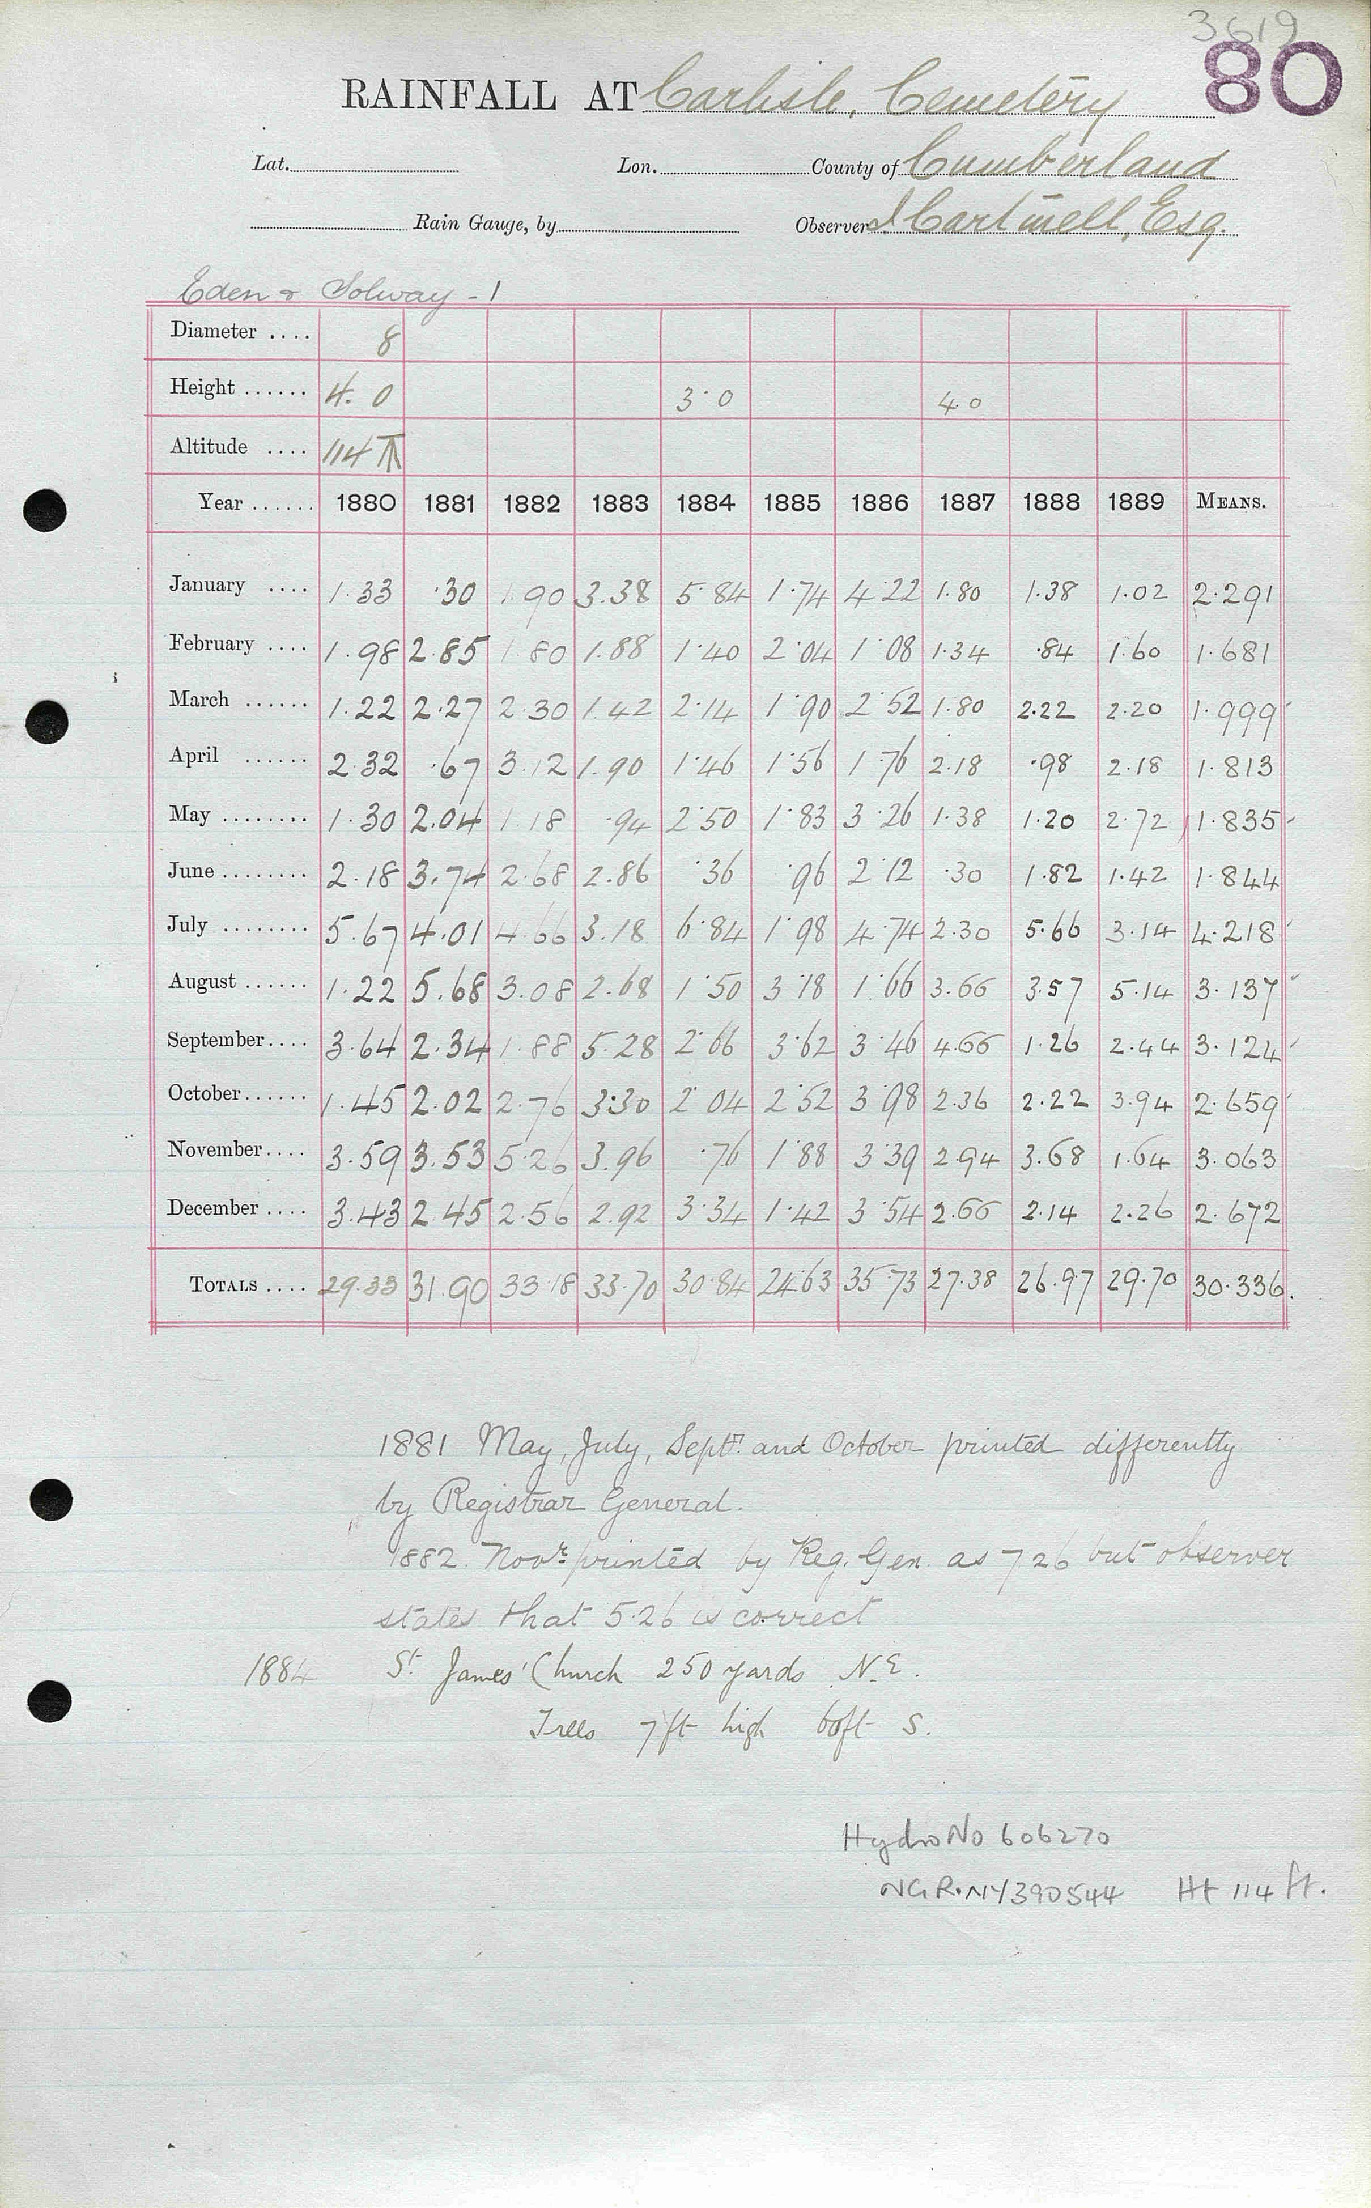 3619
80
RAINFALL AT Carlisle, Cemetery
Lat. Lon. County of Cumberland
Rain Gauge, by Observer I Cartmell, Esq.
Eden & Solway - 1
Diameter .... 8
Height ...... 4. 0 3.0 4.0
Altitude .... 114 T
Year ...... 1880 1881 1882 1883 1884 1885 1886 1887 1888 1889 MEANS.
January .... 1.33 .30 1.90 3.38 5.84 1.74 4.22 1.80 1.38 1.02 2.291
February .... 1.98 2.85 1.80 1.88 1.40 2.04 1.08 1.34 .84 1.60 1.681
March ...... 1.22 2.27 2.30 1.42 2.14 1.90 2.52 1.80 2.22 2.20 1.999
April ...... 2.32 .67 3.12 1.90 1.46 1.56 1.76 2.18 .98 2.18 1.813
May ........ 1.30 2.04 1.18 .94 2.50 1.83 3.26 1.38 1.20 2.72 1.835
June ........ 2.18 3.74 2.68 2.86 .36 .96 2.12 .30 1.82 1.42 1.844
July ........ 5.67 4.01 4.66 3.18 6.84 1.98 4.74 2.30 5.66 3.14 4.218
August ...... 1.22 5.68 3.08 2.68 1.50 3.18 1.66 3.66 3.57 5.14 3.137
September.... 3.64 2.34 1.88 5.28 2.66 3.62 3.46 4.66 1.26 2.44 3.124
October...... 1.45 2.02 2.76 3.30 2.04 2.52 3.98 2.36 2.22 3.94 2.659
November.... 3.59 3.53 5.26 3.96 .76 1.88 3.39 2.94 3.68 1.64 3.063
December .... 3.43 2.45 2.56 2.92 3.34 1.42 3.54 2.66 2.14 2.26 2.672
TOTALS .... 29.33 31.90 33.18 33.70 30.84 24.63 35.73 27.38 26.97 29.70 30.336.
1881 May, July, Septr. and October printed differently
by Registrar General.
1882. Novr. printed by Reg. Gen. as 7.26 but observer
states that 5.26 is correct
1884 St. James' Church 250 yards N.E.
Trees 7ft high 60ft S.
Hydro No 606270
NGR. NY390544 Ht 114 ft.